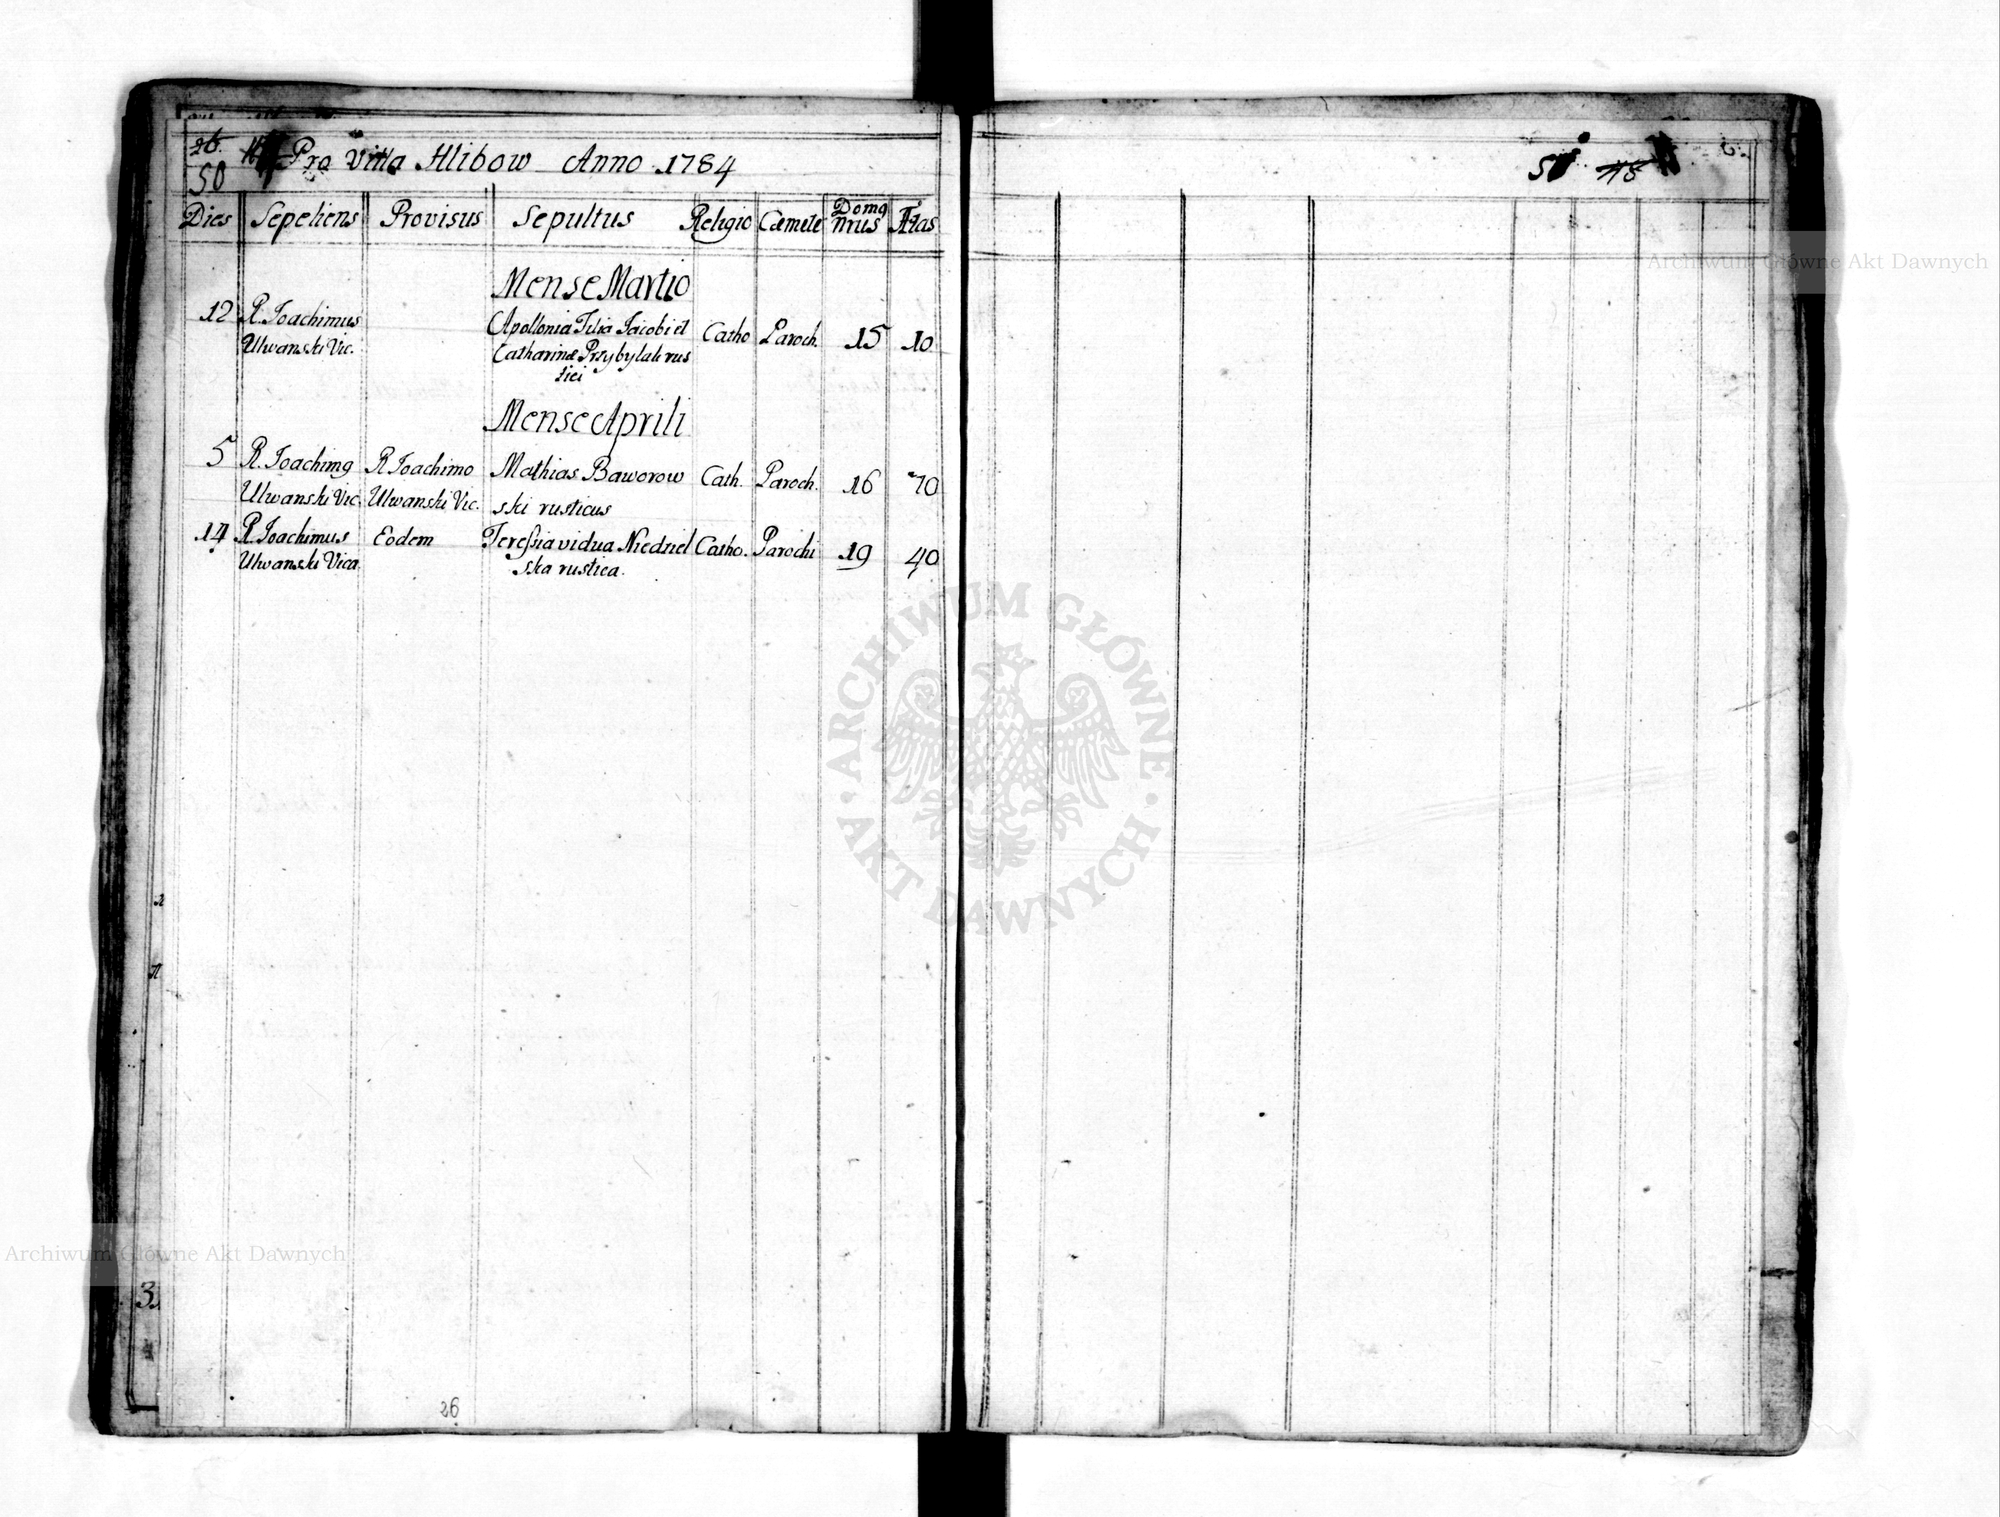 26
50
Pro Villa Hlibow Anno 1784
Dies Sepeliens Provisus Sepultus Religio Cæmete Domq nrus Ætas
Mense Martio
12 R. Joachimus Apollonia Filia Jacobi et Catho Paroch. 15 10
Ulwanski Vic. Catharinæ Przybylak rus
tici
Mense Aprili
5 R. Joachimq R Joachimo Mathias Baworow Cath. Paroch. 16 70
Ulwanski Vic. Ulwanski Vic. ski rusticus
14 R. Joachimus Eodem Teressia vidua Niedziel Catho. Parochi 19 40
Ulwanski Vica ska rustica.
3.
26
48
Archiwum Główne Akt Dawnych
ARCHIWUM GŁÓWNE
AKT DAWNYCH
Archiwum Główne Akt Dawnych